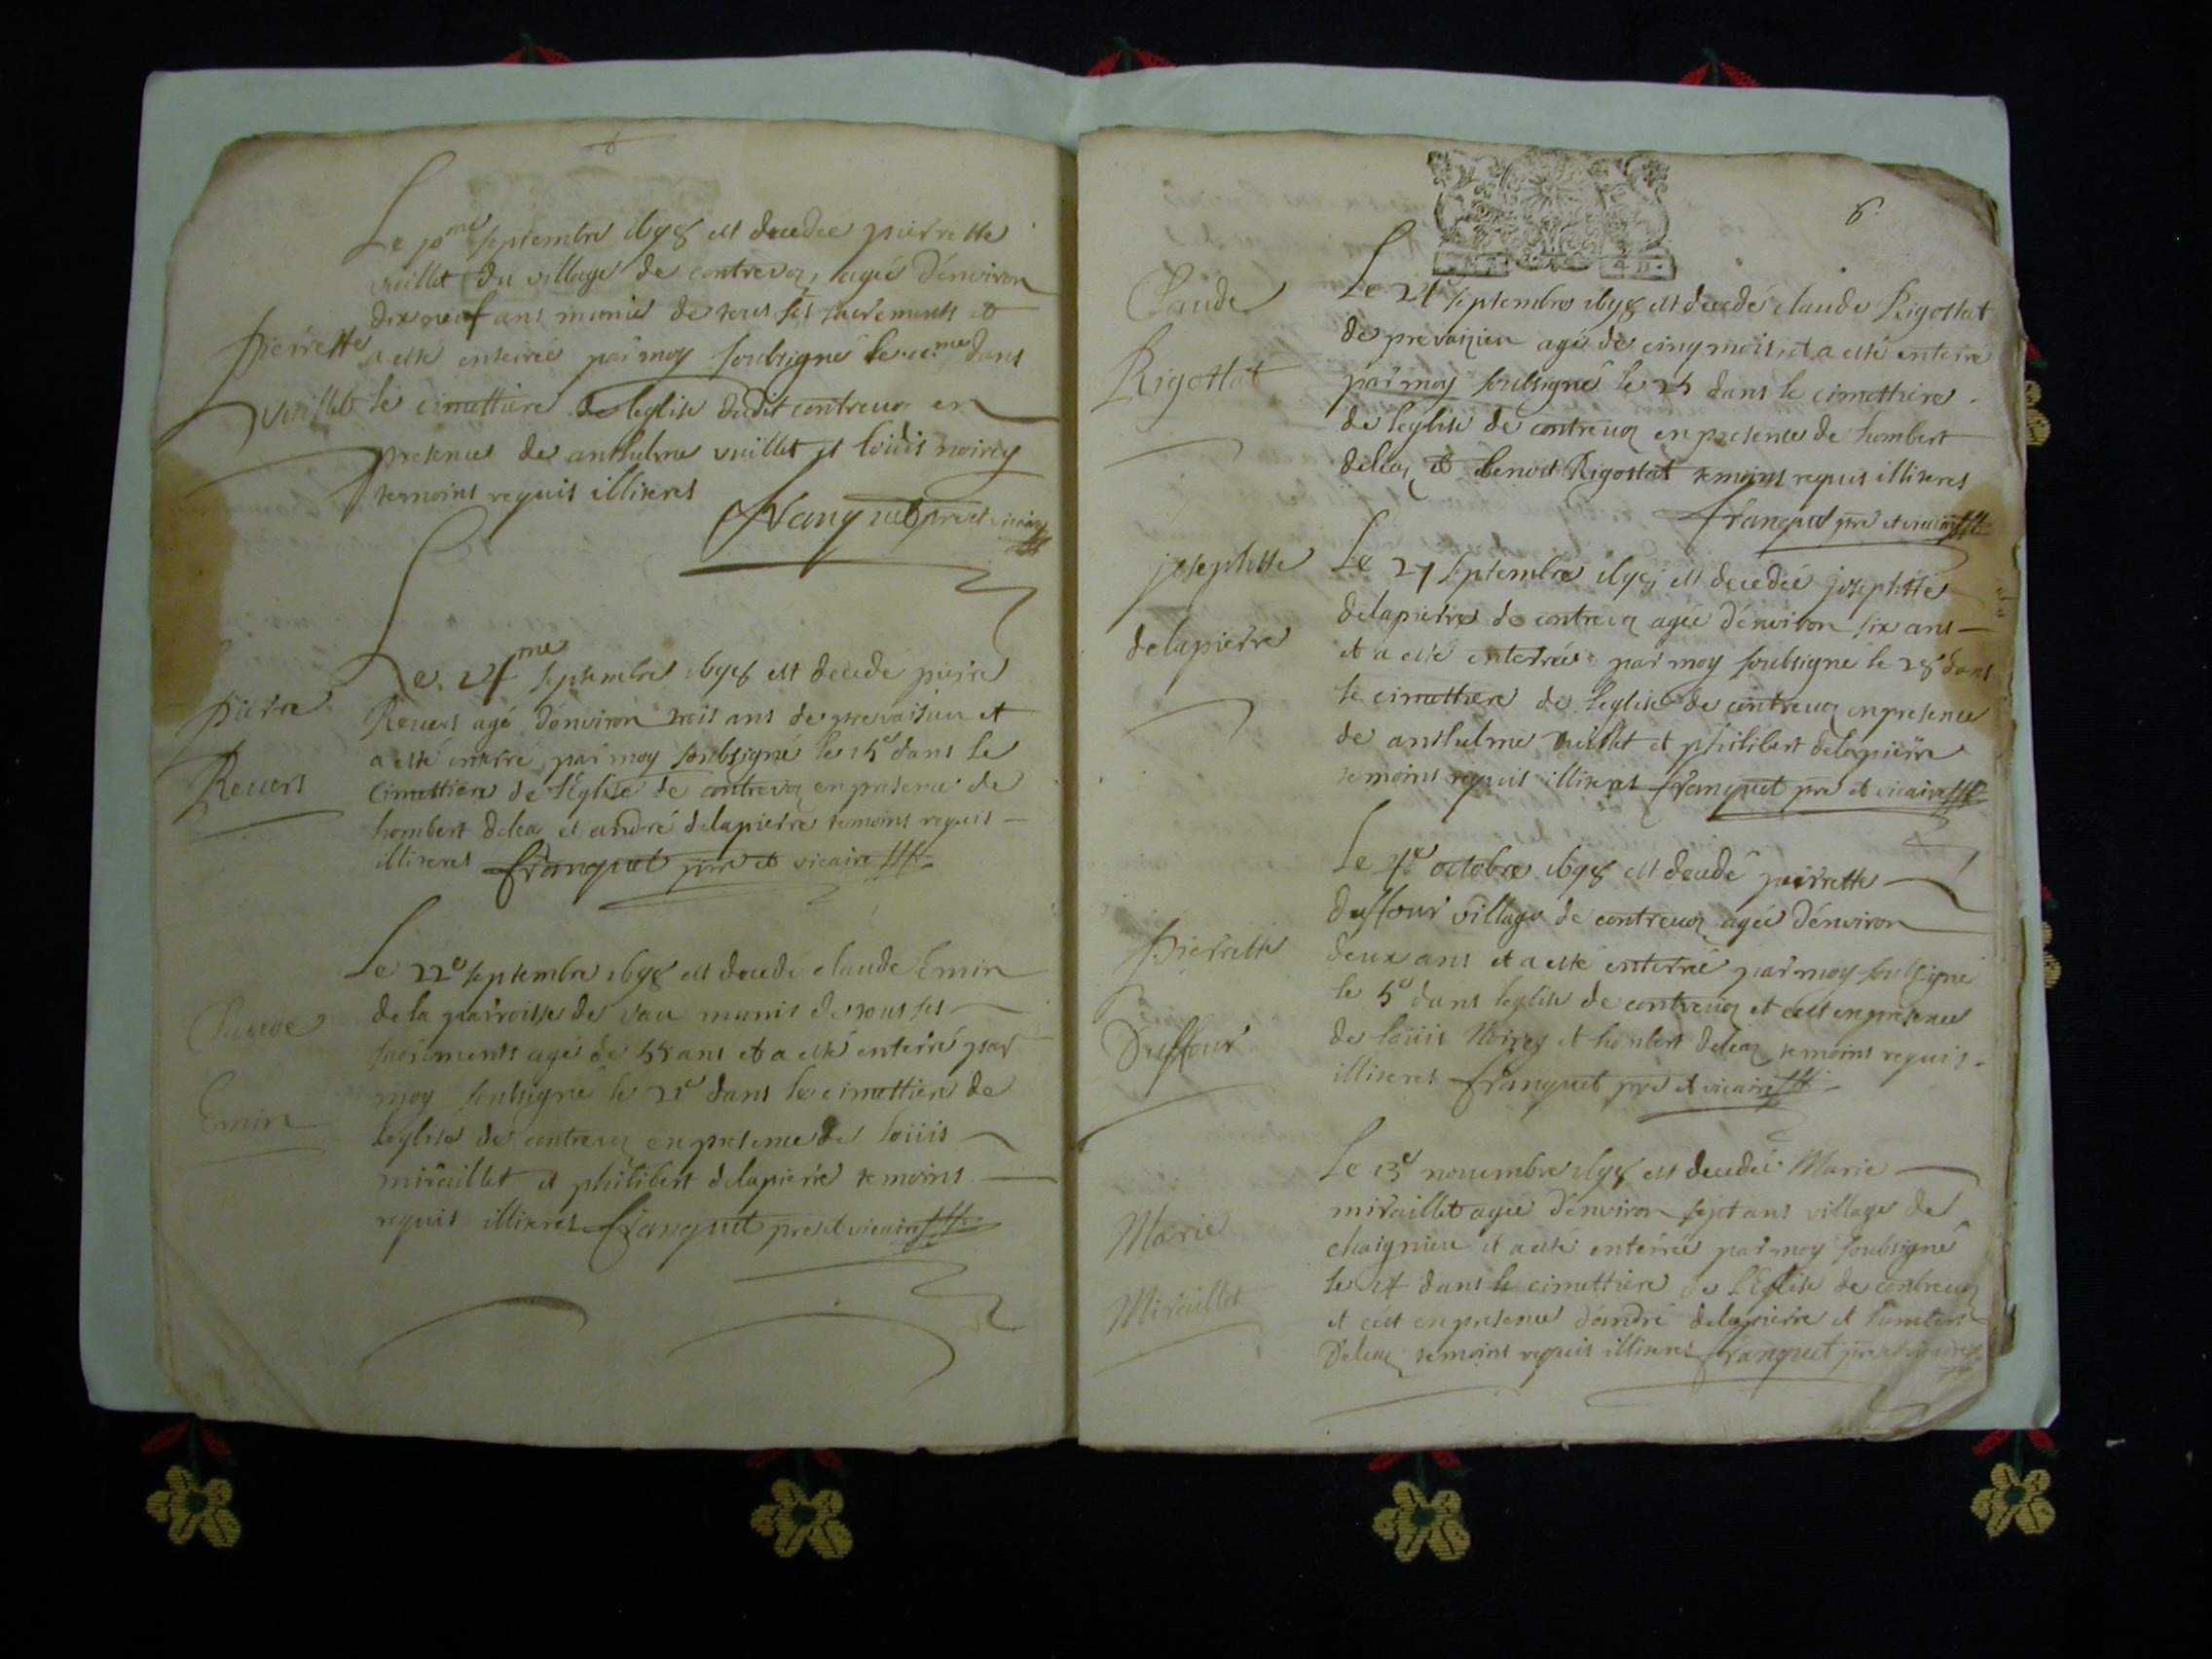 Le 10me septembre 1698 est decedee pierrette
vuillet du village de contrevoz, agée d'environ
dix neuf ans munie de tous ses sacrements et
Pierrette
a esté enterrée par moy soubsigné le 11me dans
vuillet
le cimettiere de leglise dudit contreuoz en
presence de anthelme vuillet et loüis noirey
temoins requis illiteres
Franquet pre et vicaire
Le 14me septembre 1698 est decede pierre
Pierre
Reuers agé d'environ trois ans de prevaisieu et
a esté enterré par moy soubsigné le 15e dans le
Reuers
Cimettiere de l'Eglise de contrevoz en presence de
hombert deleaz et andré delapierre temoins requis
illiteres franquet pre et vicaire
Le 22e septembre 1698 est decedé claude Emin
de la parroisse de vau munis de tous ses
Claude
sacrements agé de 55 ans et a esté enterré par
moy soubsigné le dans le cimettiere de
Emin
leglise de contrevoz en presence de loüis
miraillet et philibert delapierre temoins
requis illiteres franquet pre et vicaire
6.
4 D.
Claude
Le 24 septembre 1698 est decedé claude Rigottat
de prevaizieu agé de cinq mois, et a esté enterré
Rigottat
par moy soubsigné le 25 dans le cimettiere
de leglise de contreuoz en presence de hombert
deleaz et benoit Rigottat temoins requis illiteres
franquet pre et vicaire
josephette
Le 27 septembre 1698 est decedée josephtte
delapierre de contrevoz agée d'environ six ans
delapierre
et a esté enterrée par moy soubsigné le 28 dans
le cimettiere de leglise de contreuoz en presence
de anthelme vuillet et philibert delapierre
temoins requis illiteres franquet pre et vicaire
Le 4e octobre 1698 est decedé pierrette
duffour village de contreuoz agée d'environ
Pierrette
deux ans et a esté enterrée par moy soubsigné
le 5e dans leglise de contreuoz et cest en presence
Duffour
de loüis Noirey et honbert deleaz temoins requis
illiteres franquet pre et vicaire
Le 13e nouembre 1698 est decedée Marie
miraillet agée d'environ sept ans village de
Marie
chaignieu et a esté enterrée par moy soubsigné
le 14 dans le cimettiere de l'Eglise de contreuoz
Miraillet
et cest en presence d'andré delapierre et humbert
Deleaz temoins requis illiteres franquet pre et vicaire